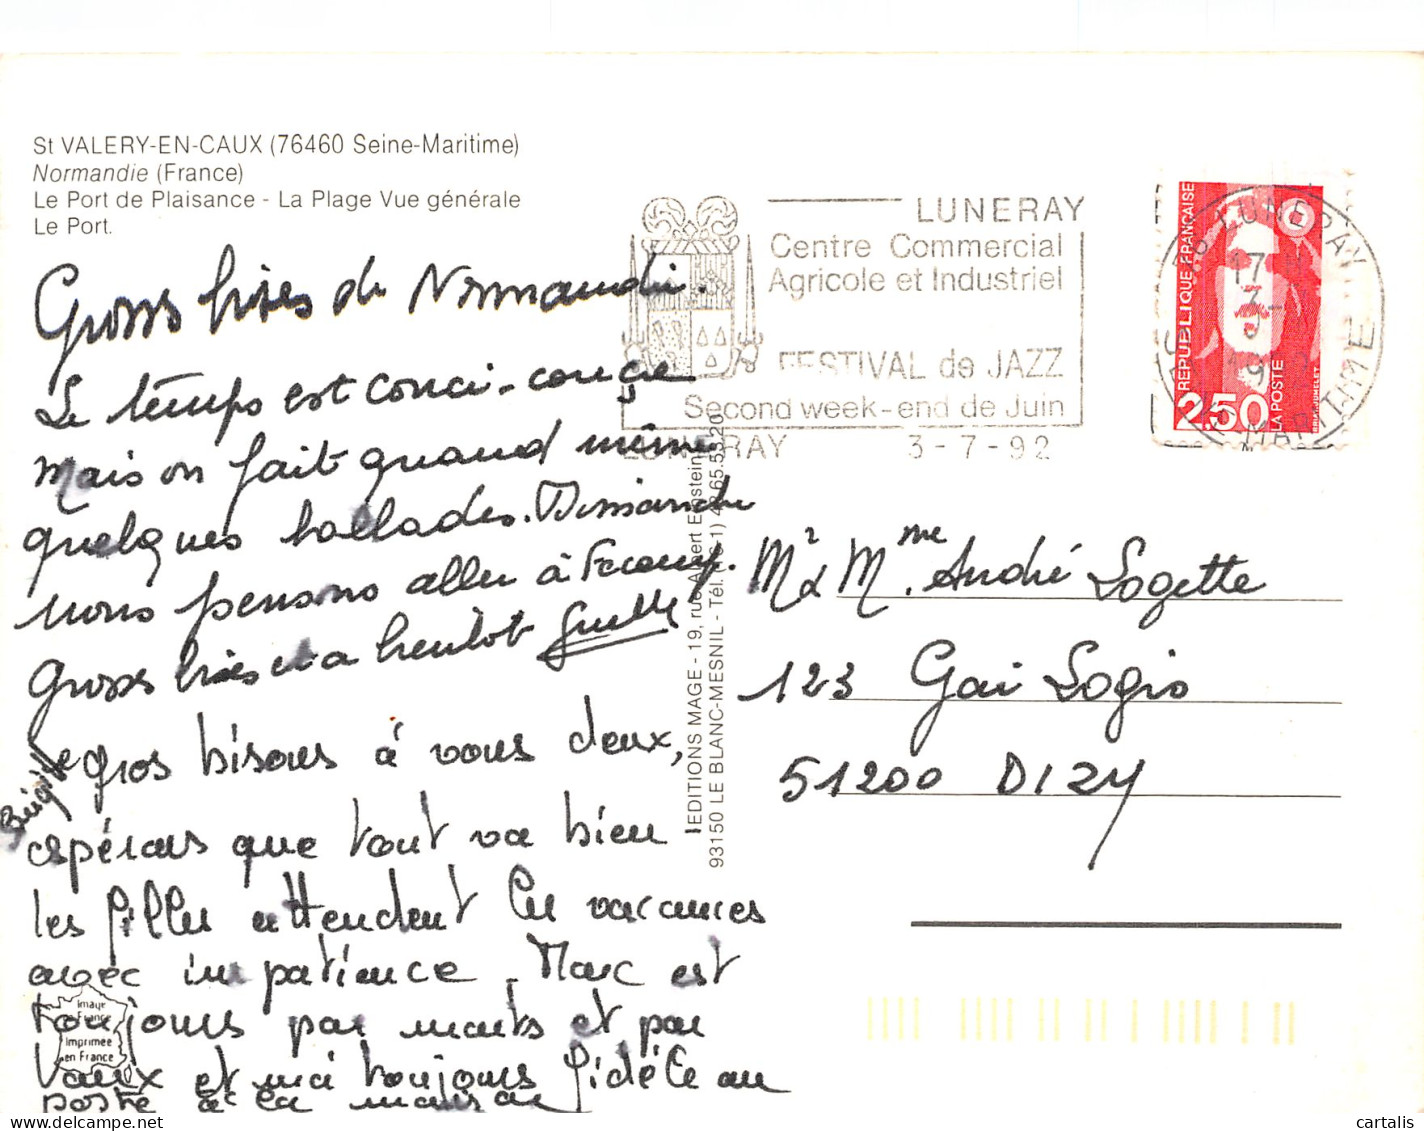 St VALERY-EN-CAUX (76460 Seine-Maritime)
Normandie (France)
Le Port de Plaisance - La Plage Vue générale
Le Port.
Grosses bises de Normandie.
Le temps est couci-couça
mais on fait quand même
quelques ballades. Dimanche
nous pensons aller à Fécamp.
Grosses bises et a bientot
gros bisous à vous deux,
espérons que tout va bien
les filles attendent les vacances
avec impatience. Marc est
toujours par monts et par
vaux et moi toujours fidèle au
poste à la maison
Image
de France
Imprimée
en France
EDITIONS MAGE - 19, rue Albert Einstein
93150 LE BLANC-MESNIL - Tél. (16-1) 48.65.53.20
LUNERAY
Centre Commercial
Agricole et Industriel
FESTIVAL de JAZZ
Second week-end de Juin
LUNERAY 3-7-92
76 LUNERAY
17
3-
7
1992
SEINE MARITIME
REPUBLIQUE FRANÇAISE
2,50
LA POSTE
Mr & Mme. André Logette
123 Gai Logis
51200 DIZY
© cartalis